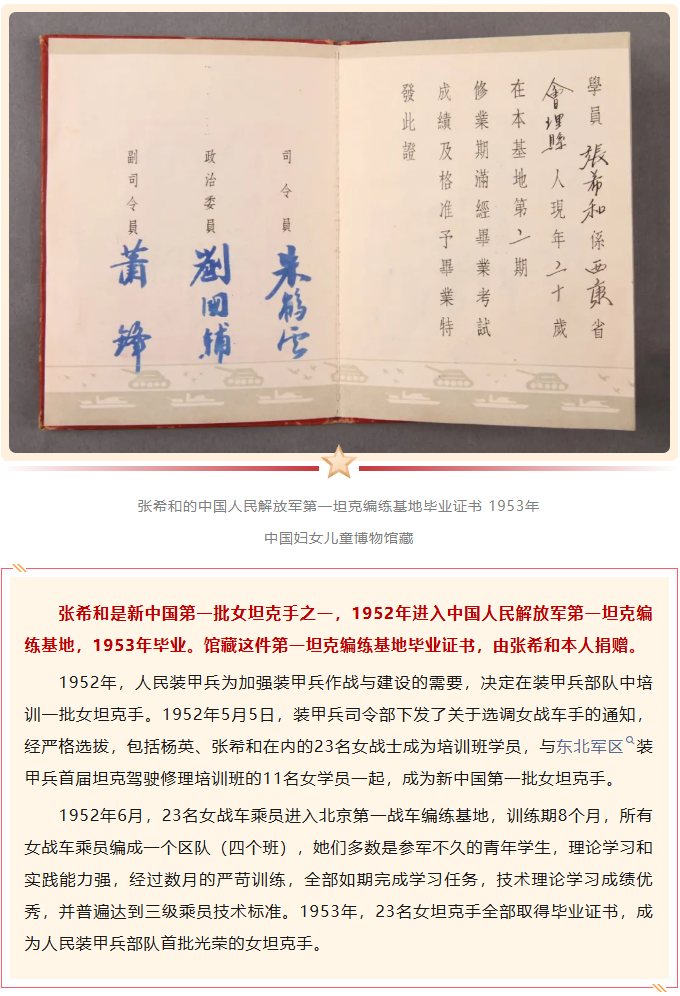 學員張希和係西康省
會理縣人現年二十歲
在本基地第二期
修業期滿經畢業考試
成績及格准予畢業特
發此證
司令員
朱鶴雲
政治委員
劉國輔
副司令員
蕭鋒
张希和的中国人民解放军第一坦克编练基地毕业证书 1953年
中国妇女儿童博物馆藏
张希和是新中国第一批女坦克手之一，1952年进入中国人民解放军第一坦克编
练基地，1953年毕业。馆藏这件第一坦克编练基地毕业证书，由张希和本人捐赠。
1952年，人民装甲兵为加强装甲兵作战与建设的需要，决定在装甲兵部队中培
训一批女坦克手。1952年5月5日，装甲兵司令部下发了关于选调女战车手的通知，
经严格选拔，包括杨英、张希和在内的23名女战士成为培训班学员，与东北军区装
甲兵首届坦克驾驶修理培训班的11名女学员一起，成为新中国第一批女坦克手。
1952年6月，23名女战车乘员进入北京第一战车编练基地，训练期8个月，所有
女战车乘员编成一个区队（四个班），她们多数是参军不久的青年学生，理论学习和
实践能力强，经过数月的严苛训练，全部如期完成学习任务，技术理论学习成绩优
秀，并普遍达到三级乘员技术标准。1953年，23名女坦克手全部取得毕业证书，成
为人民装甲兵部队首批光荣的女坦克手。